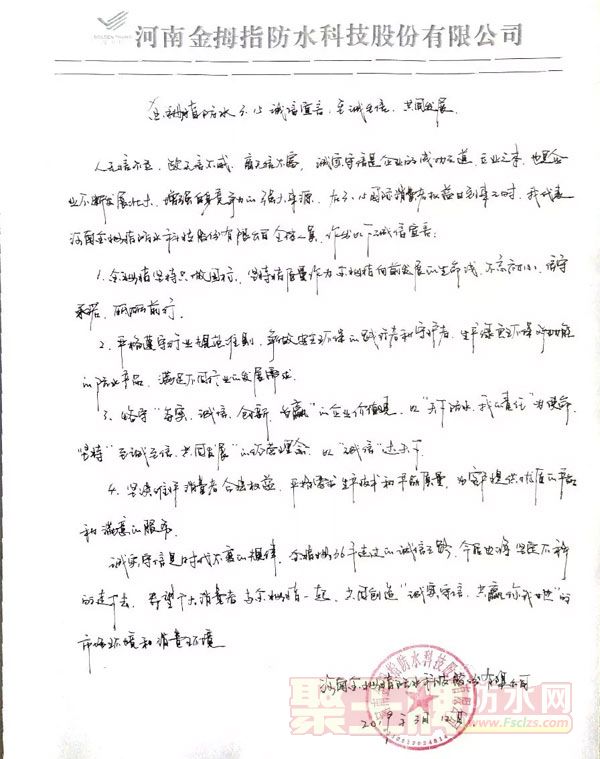 GOLDEN THUMB
河南金拇指防水科技股份有限公司
金拇指防水3.15诚信宣言:至诚至信,共同发展
人无信不立,政无信不威,商无信不富。诚实守信是企业的成功之道,立业之本,也是企
业不断发展壮大,增强竞争力的强大来源。在3.15国际消费者权益日到来之时,我代表
河南金拇指防水科技股份有限公司全体人员,作出如下诚信宣言:
1. 金拇指坚持只做国标,坚持将质量作为金拇指向前发展的生命线,不忘初心,信守
承诺,砥砺前行。
2. 严格遵守行业规范准则,争做安全环保的践行者和守护者,生产绿色环保新功能
的防水产品,满足不同行业的发展需求。
3. 恪守“务实、诚信、创新、共赢”的企业价值观,以“天下防水,我的责任”为使命,
坚持“至诚至信、共同发展”的经营理念,以“诚信”走天下。
4. 坚决维护消费者合法权益,严格落实生产技术和产品质量,为客户提供优质的产品
和满意的服务。
诚实守信是时代不变的规律,金拇指36年走过的诚信之路,今后也将坚定不移
的走下去,希望广大消费者与金拇指一起,共同创造“诚实守信,共赢你我他”的
市场环境和消费环境。
河南金拇指防水科技股份有限公司
2019年3月12日
防水网
www.Fsclzs.com